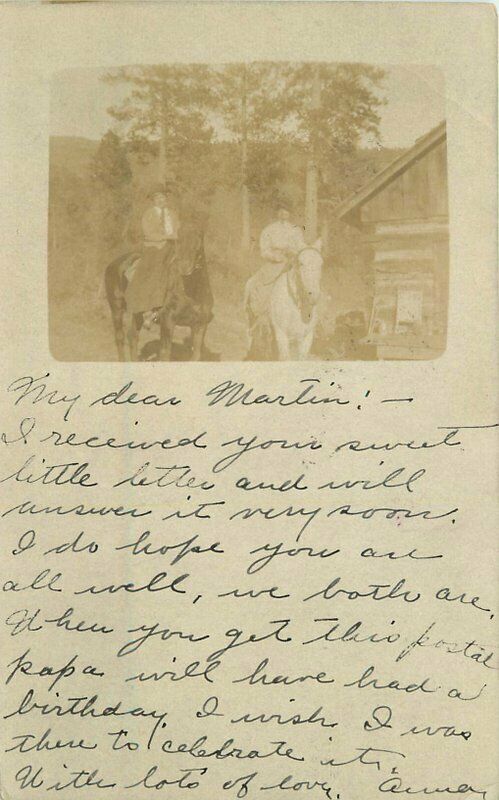 My dear Martin! —
I received your sweet
little letter and will
answer it very soon.
I do hope you are
all well, we both are.
When you get this postal
papa will have had a
birthday. I wish I was
there to celebrate it.
With lots of love.